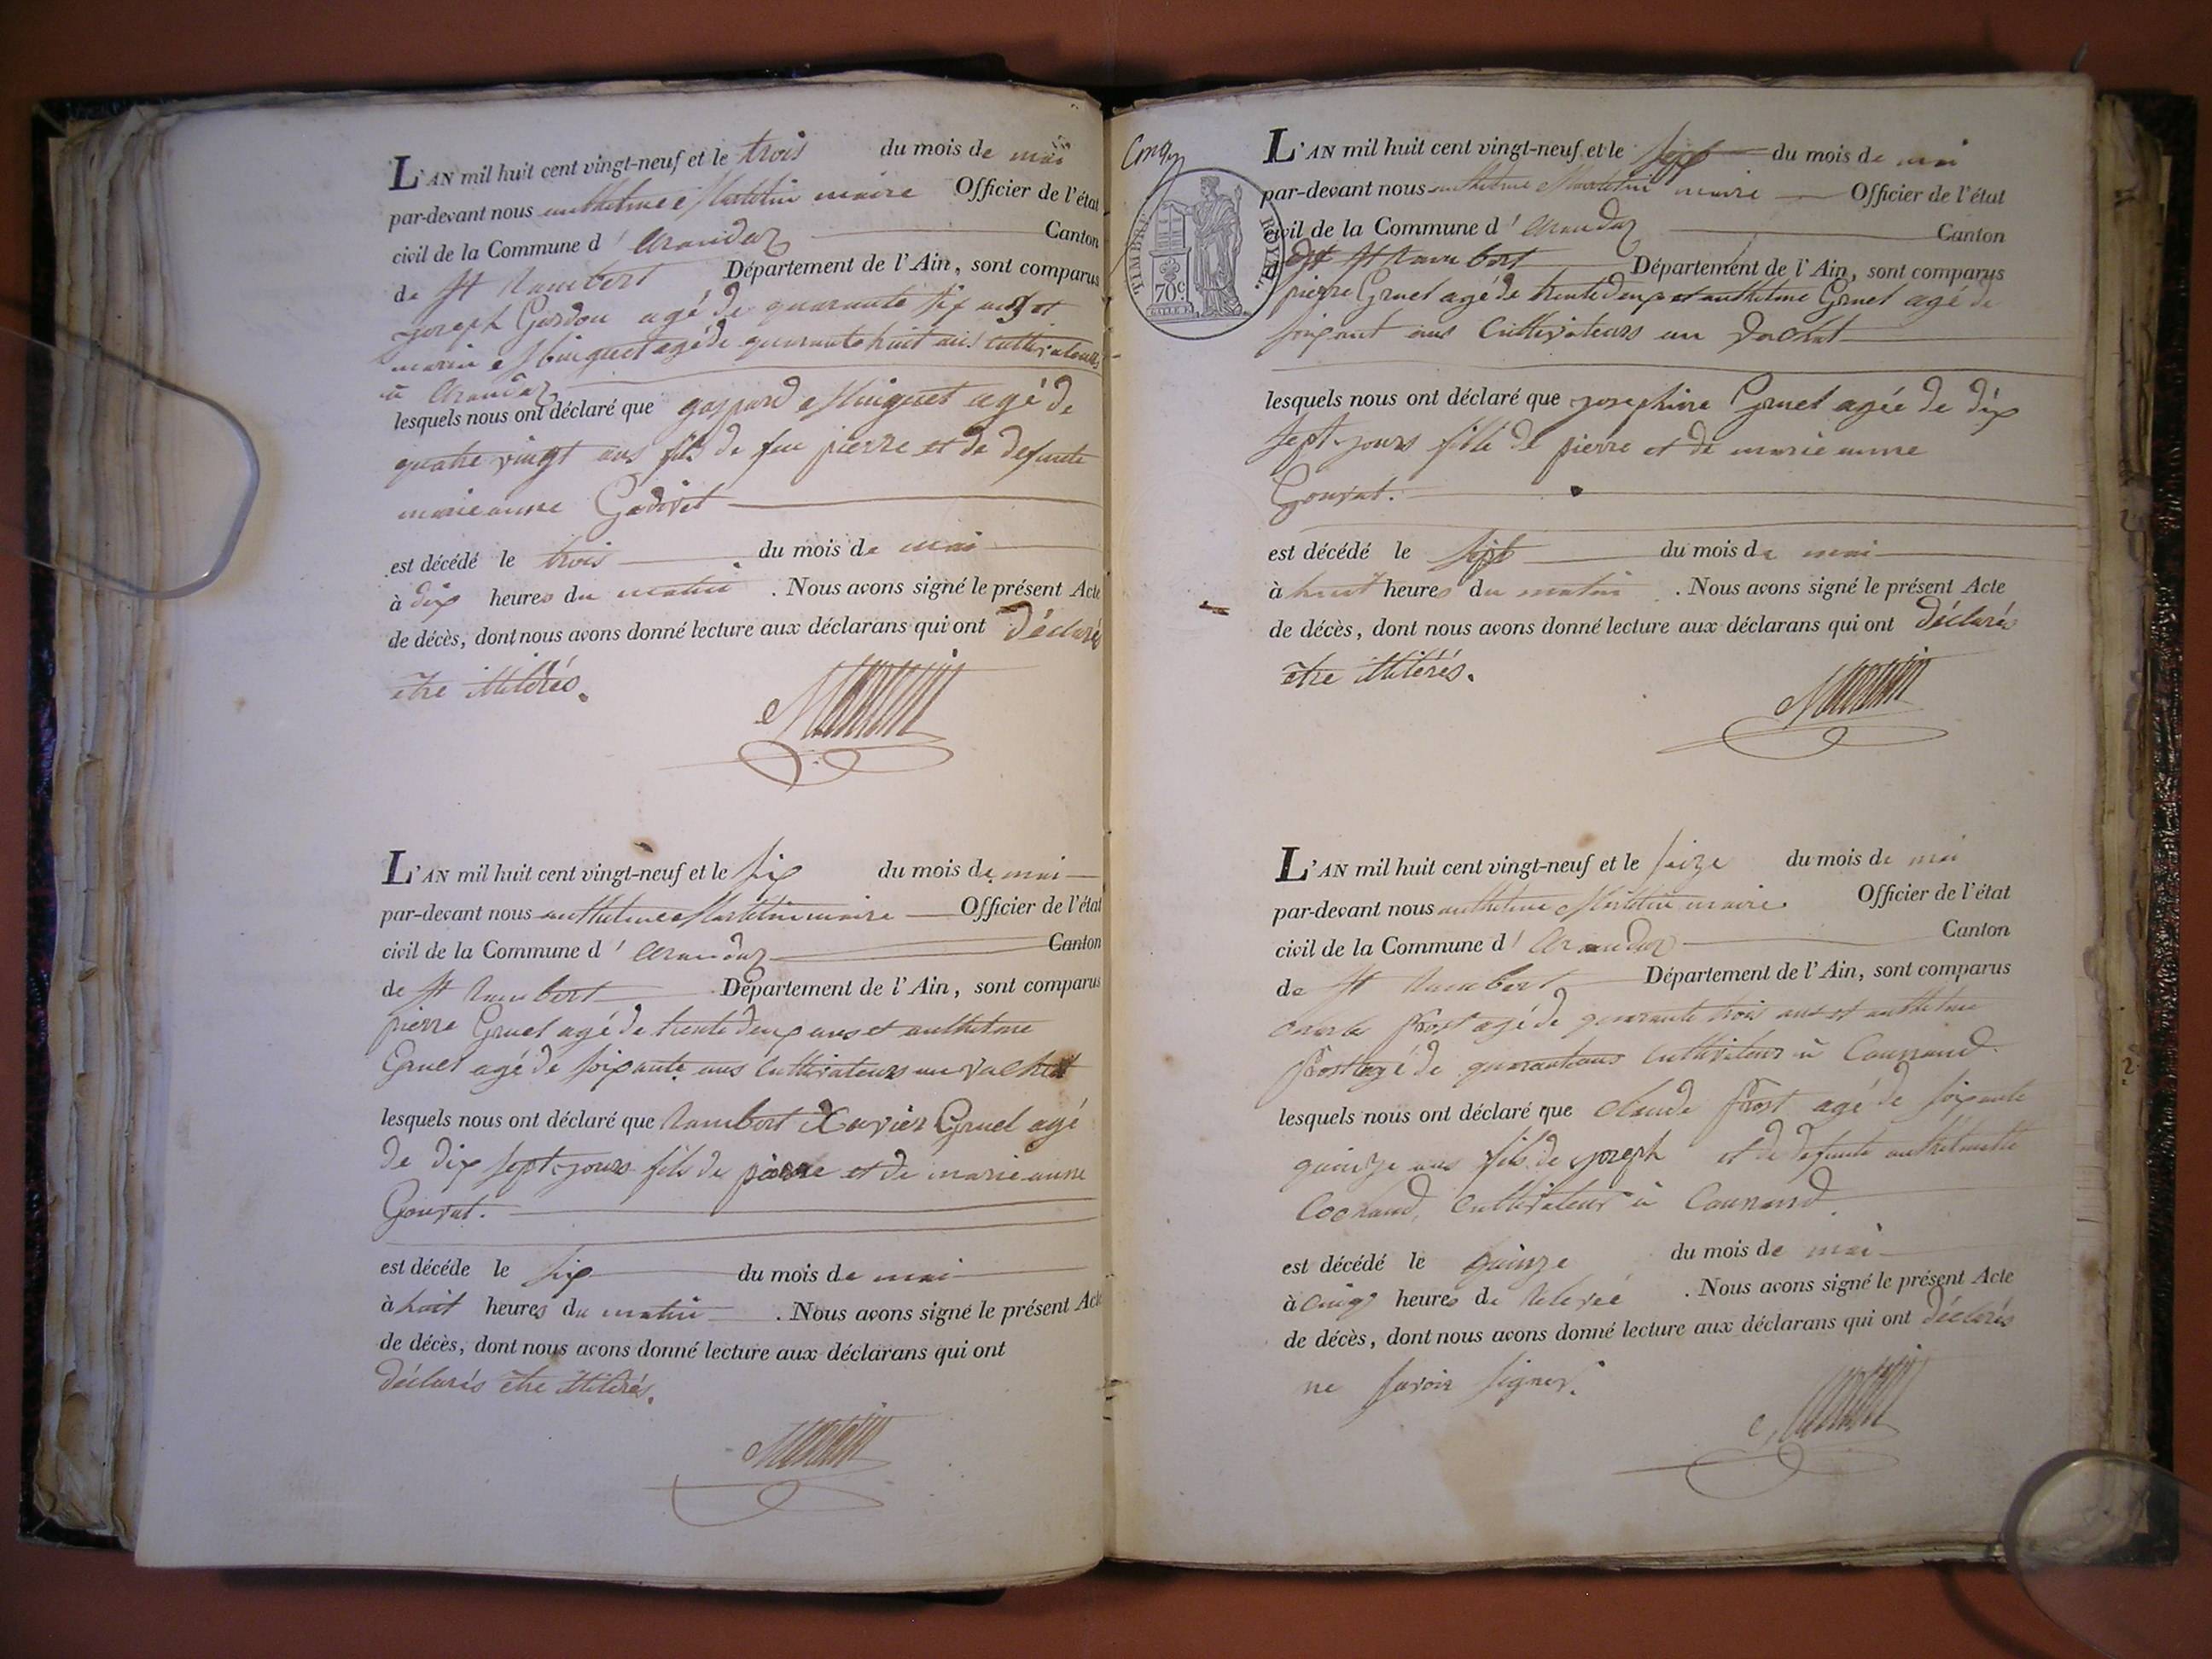 L'AN mil huit cent vingt-neuf et le trois du mois de mai
par-devant nous anthelme Martelin maire Officier de l'état
civil de la Commune d' arandaz Canton
de St Rambert Département de l'Ain, sont comparus
joseph Gardon agé de quarante six ans et
marin Minguet agé de quarante huit ans cultivateurs
à arandaz
lesquels nous ont déclaré que gaspard Minguet agé de
quatre vingt ans fils de feu pierre et de defunte
marie anne Godivet
est décédé le trois du mois de mai
à dix heures du matin . Nous avons signé le présent Acte
de décès, dont nous avons donné lecture aux déclarans qui ont déclarés
être illiterés.
L'AN mil huit cent vingt-neuf et le six du mois de mai
par-devant nous anthelme Martelin maire Officier de l'état
civil de la Commune d' arandaz Canton
de St Rambert Département de l'Ain, sont comparus
pierre Gruel agé de trente deux ans et anthelme
Gruel agé de soixante ans cultivateurs au vachat
lesquels nous ont déclaré que Rambert Xavier Gruel agé
de dix sept jours fils de pierre et de marie anne
Gouvat.
est décéde le six du mois de mai
à huit heures du matin . Nous avons signé le présent Acte
de décès, dont nous avons donné lecture aux déclarans qui ont
déclarés être illiterés.
TIMBRE ROYAL
70c
L'AN mil huit cent vingt-neuf et le sept du mois de mai
par-devant nous anthelme Martelin maire Officier de l'état
civil de la Commune d' arandaz Canton
de St Rambert Département de l'Ain, sont comparus
pierre Gruel agé de trente deux et anthelme Gruel agé de
soixant ans Cultivateurs au vachat
lesquels nous ont déclaré que josephine Gruel agée de dix
sept jours fille de pierre et de marie anne
Gouvat.
est décédé le sept du mois de mai
à huit heures du matin . Nous avons signé le présent Acte
de décès, dont nous avons donné lecture aux déclarans qui ont déclarés
être illiterés.
L'AN mil huit cent vingt-neuf et le seize du mois de mai
par-devant nous anthelme Martelin maire Officier de l'état
civil de la Commune d' arandaz Canton
de St Rambert Département de l'Ain, sont comparus
Prost agé de quarante trois ans et anthelme
Prost agé de quarante ans cultivateurs à Counand
lesquels nous ont déclaré que claude Prost agé de soixante
quinze ans fils de joseph et de defunte anthelmette
Cochaud, Cultivateur à Counand.
est décédé le quinze du mois de mai
à cinq heures de relevée . Nous avons signé le présent Acte
de décès, dont nous avons donné lecture aux déclarans qui ont déclarés
ne savoir signer.